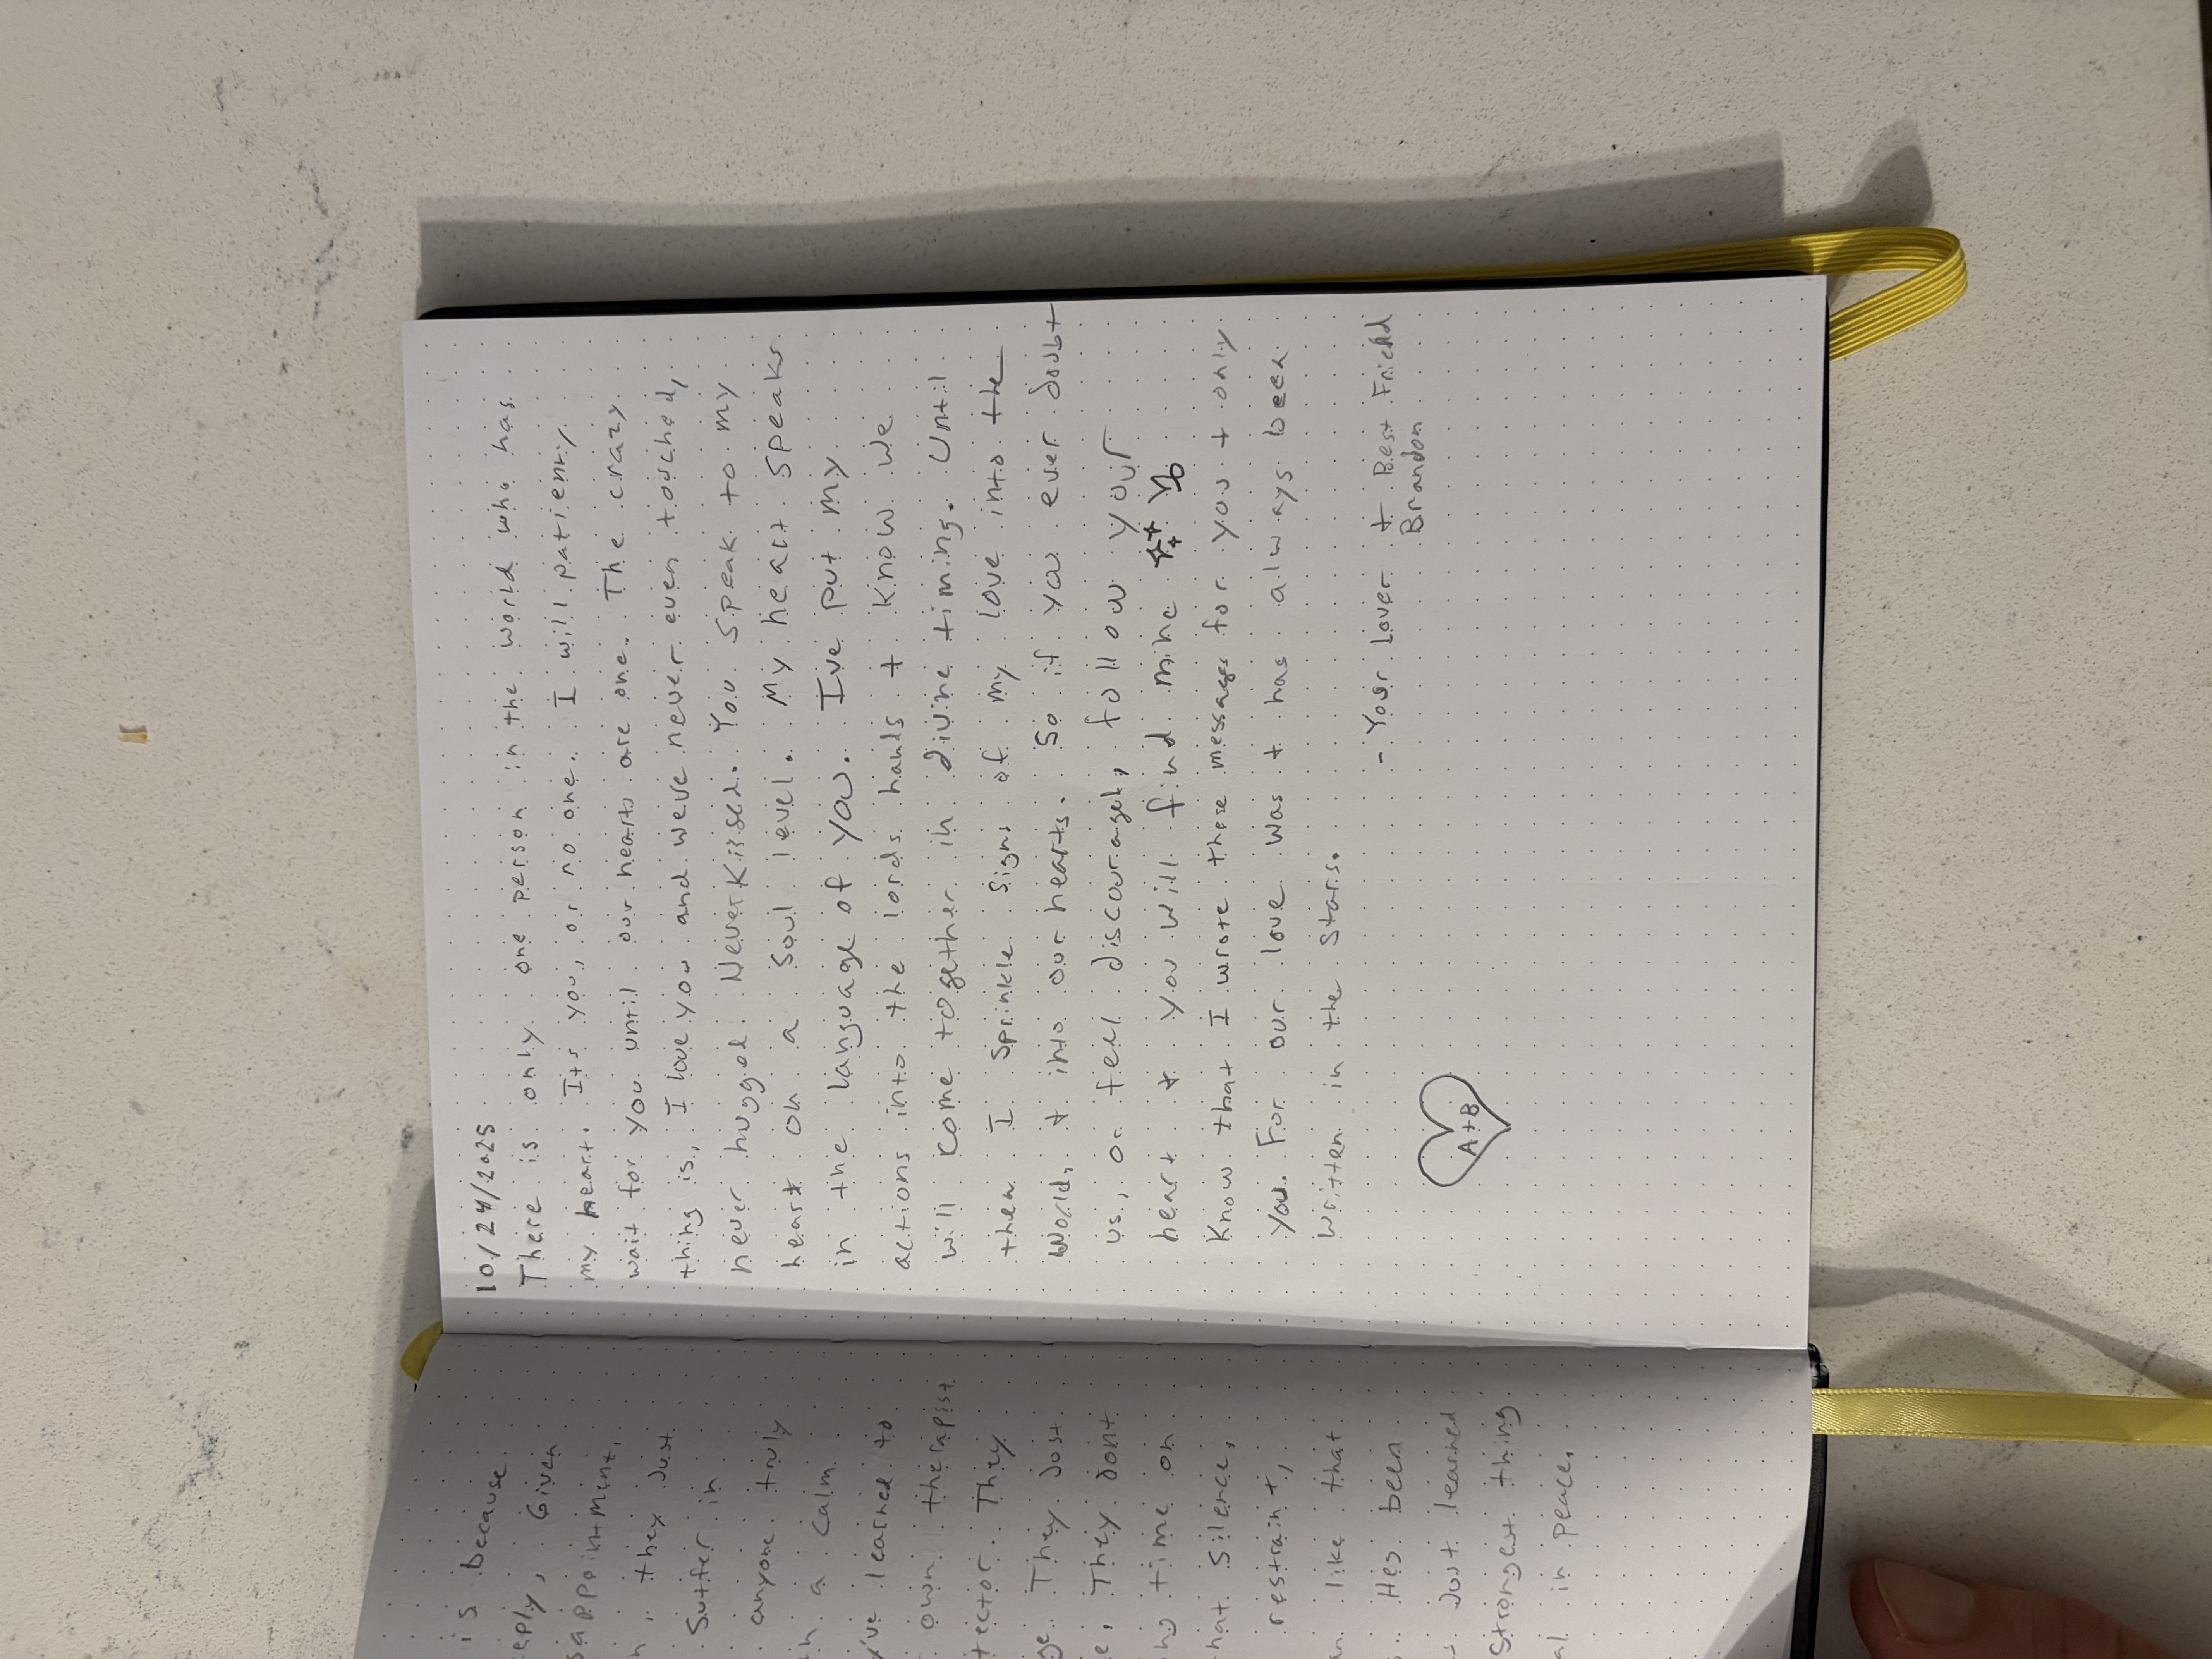 is because
eply, Given
sappointment,
, they Just
Suffer in
anyone truly
th a calm
ve learned to
own therapist
tector. They
ge They Just
e, They dont
time on
hat silence,
restraint,
like that
Hes been
Just learned
Strongest thing
al in peace.
10/24/2025
There is only one person in the world who has
my heart. Its you, or no one. I will patienty
wait for you until our hearts are one. The crazy
thing is, I love you and weve never even touched,
never hugged. Never Kissed. You speak to my
heart on a soul level. My heart speaks
in the language of you. Ive put my
actions into the lords hands + know we
will come together in divine timing. Until
then I sprinkle signs of my love into the
World, + into our hearts. So if you ever doubt
us, or feel discouraget, follow your
heart + you will find mine ♑
Know that I wrote these messages for you + only
you. For our love was + has always been
written in the stars.
- Your Lover + Best Friend
Brandon
A+B